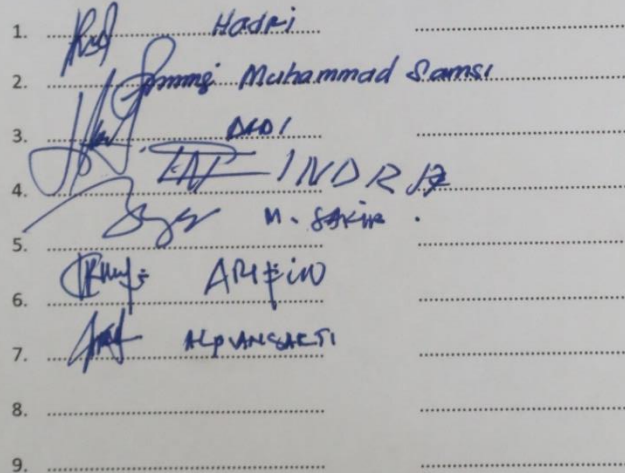 1. Hadri
2. Muhammad Samsi
3. DADI
4. INDRA
5. M. SAKIR.
6. ARIFIN
7. ALPIANSAKTI
8.
9.